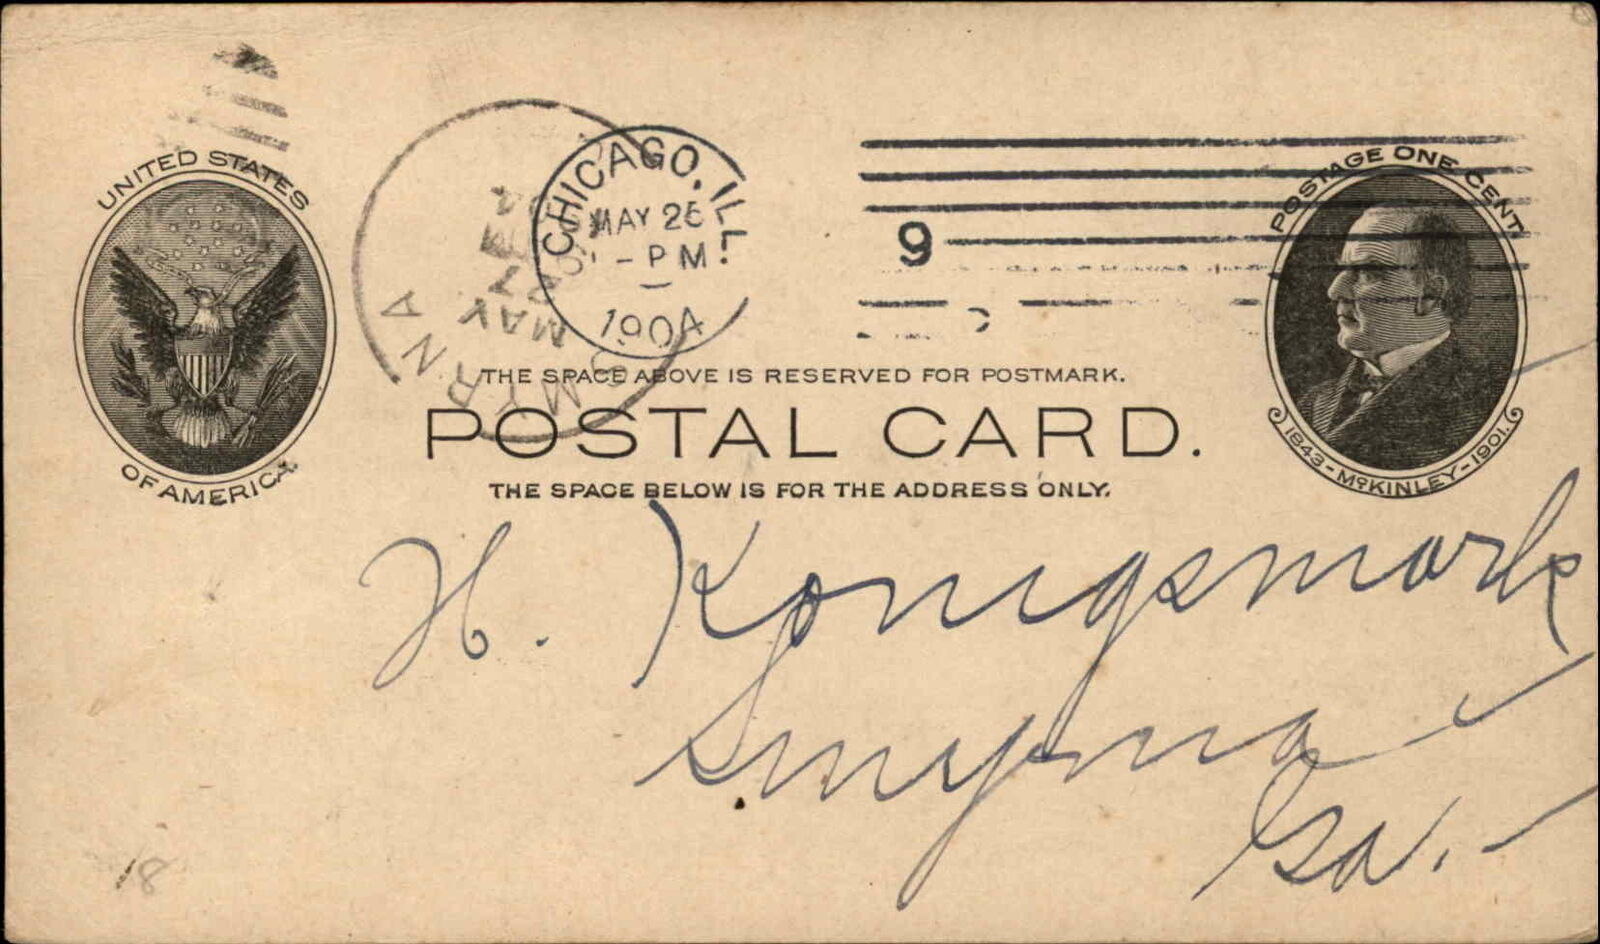 UNITED STATES
OF AMERICA
CHICAGO, ILL.
MAY 26
- PM
1904
9
SMYRNA
MAY
POSTAGE ONE CENT
1843-McKINLEY-1901.
THE SPACE ABOVE IS RESERVED FOR POSTMARK.
POSTAL CARD.
THE SPACE BELOW IS FOR THE ADDRESS ONLY.
H. Konigsmark
Smyrna
Ga.
18